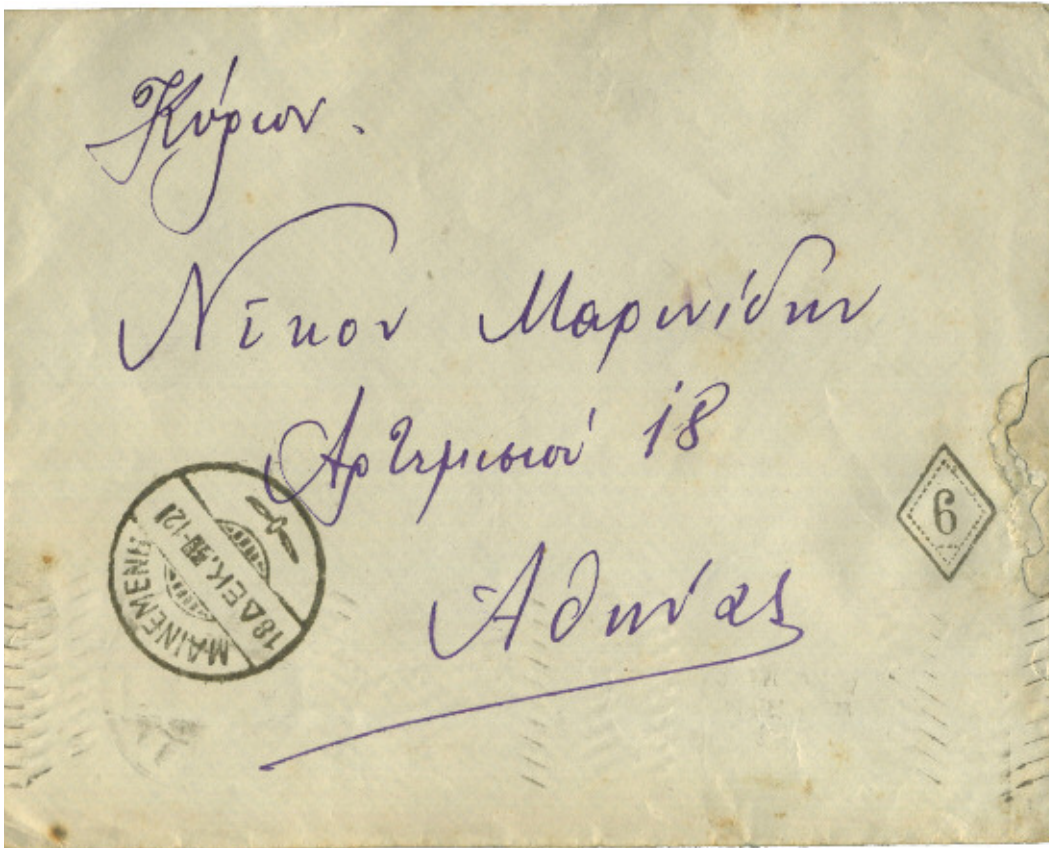 Κύριον.
Νίκον Μαρινίδην
Αρτεμισίου 18
Αθήνας
ΜΑΙΝΕΜΕΝΗ
18 ΔΕΚ. -12
6